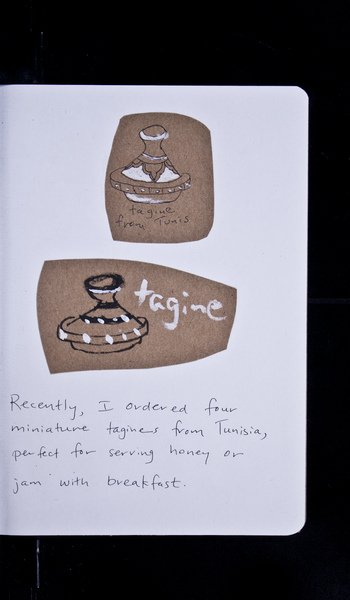 tagine
from Tunis
tagine
Recently, I ordered four
miniature tagines from Tunisia,
perfect for serving honey or
jam with breakfast.